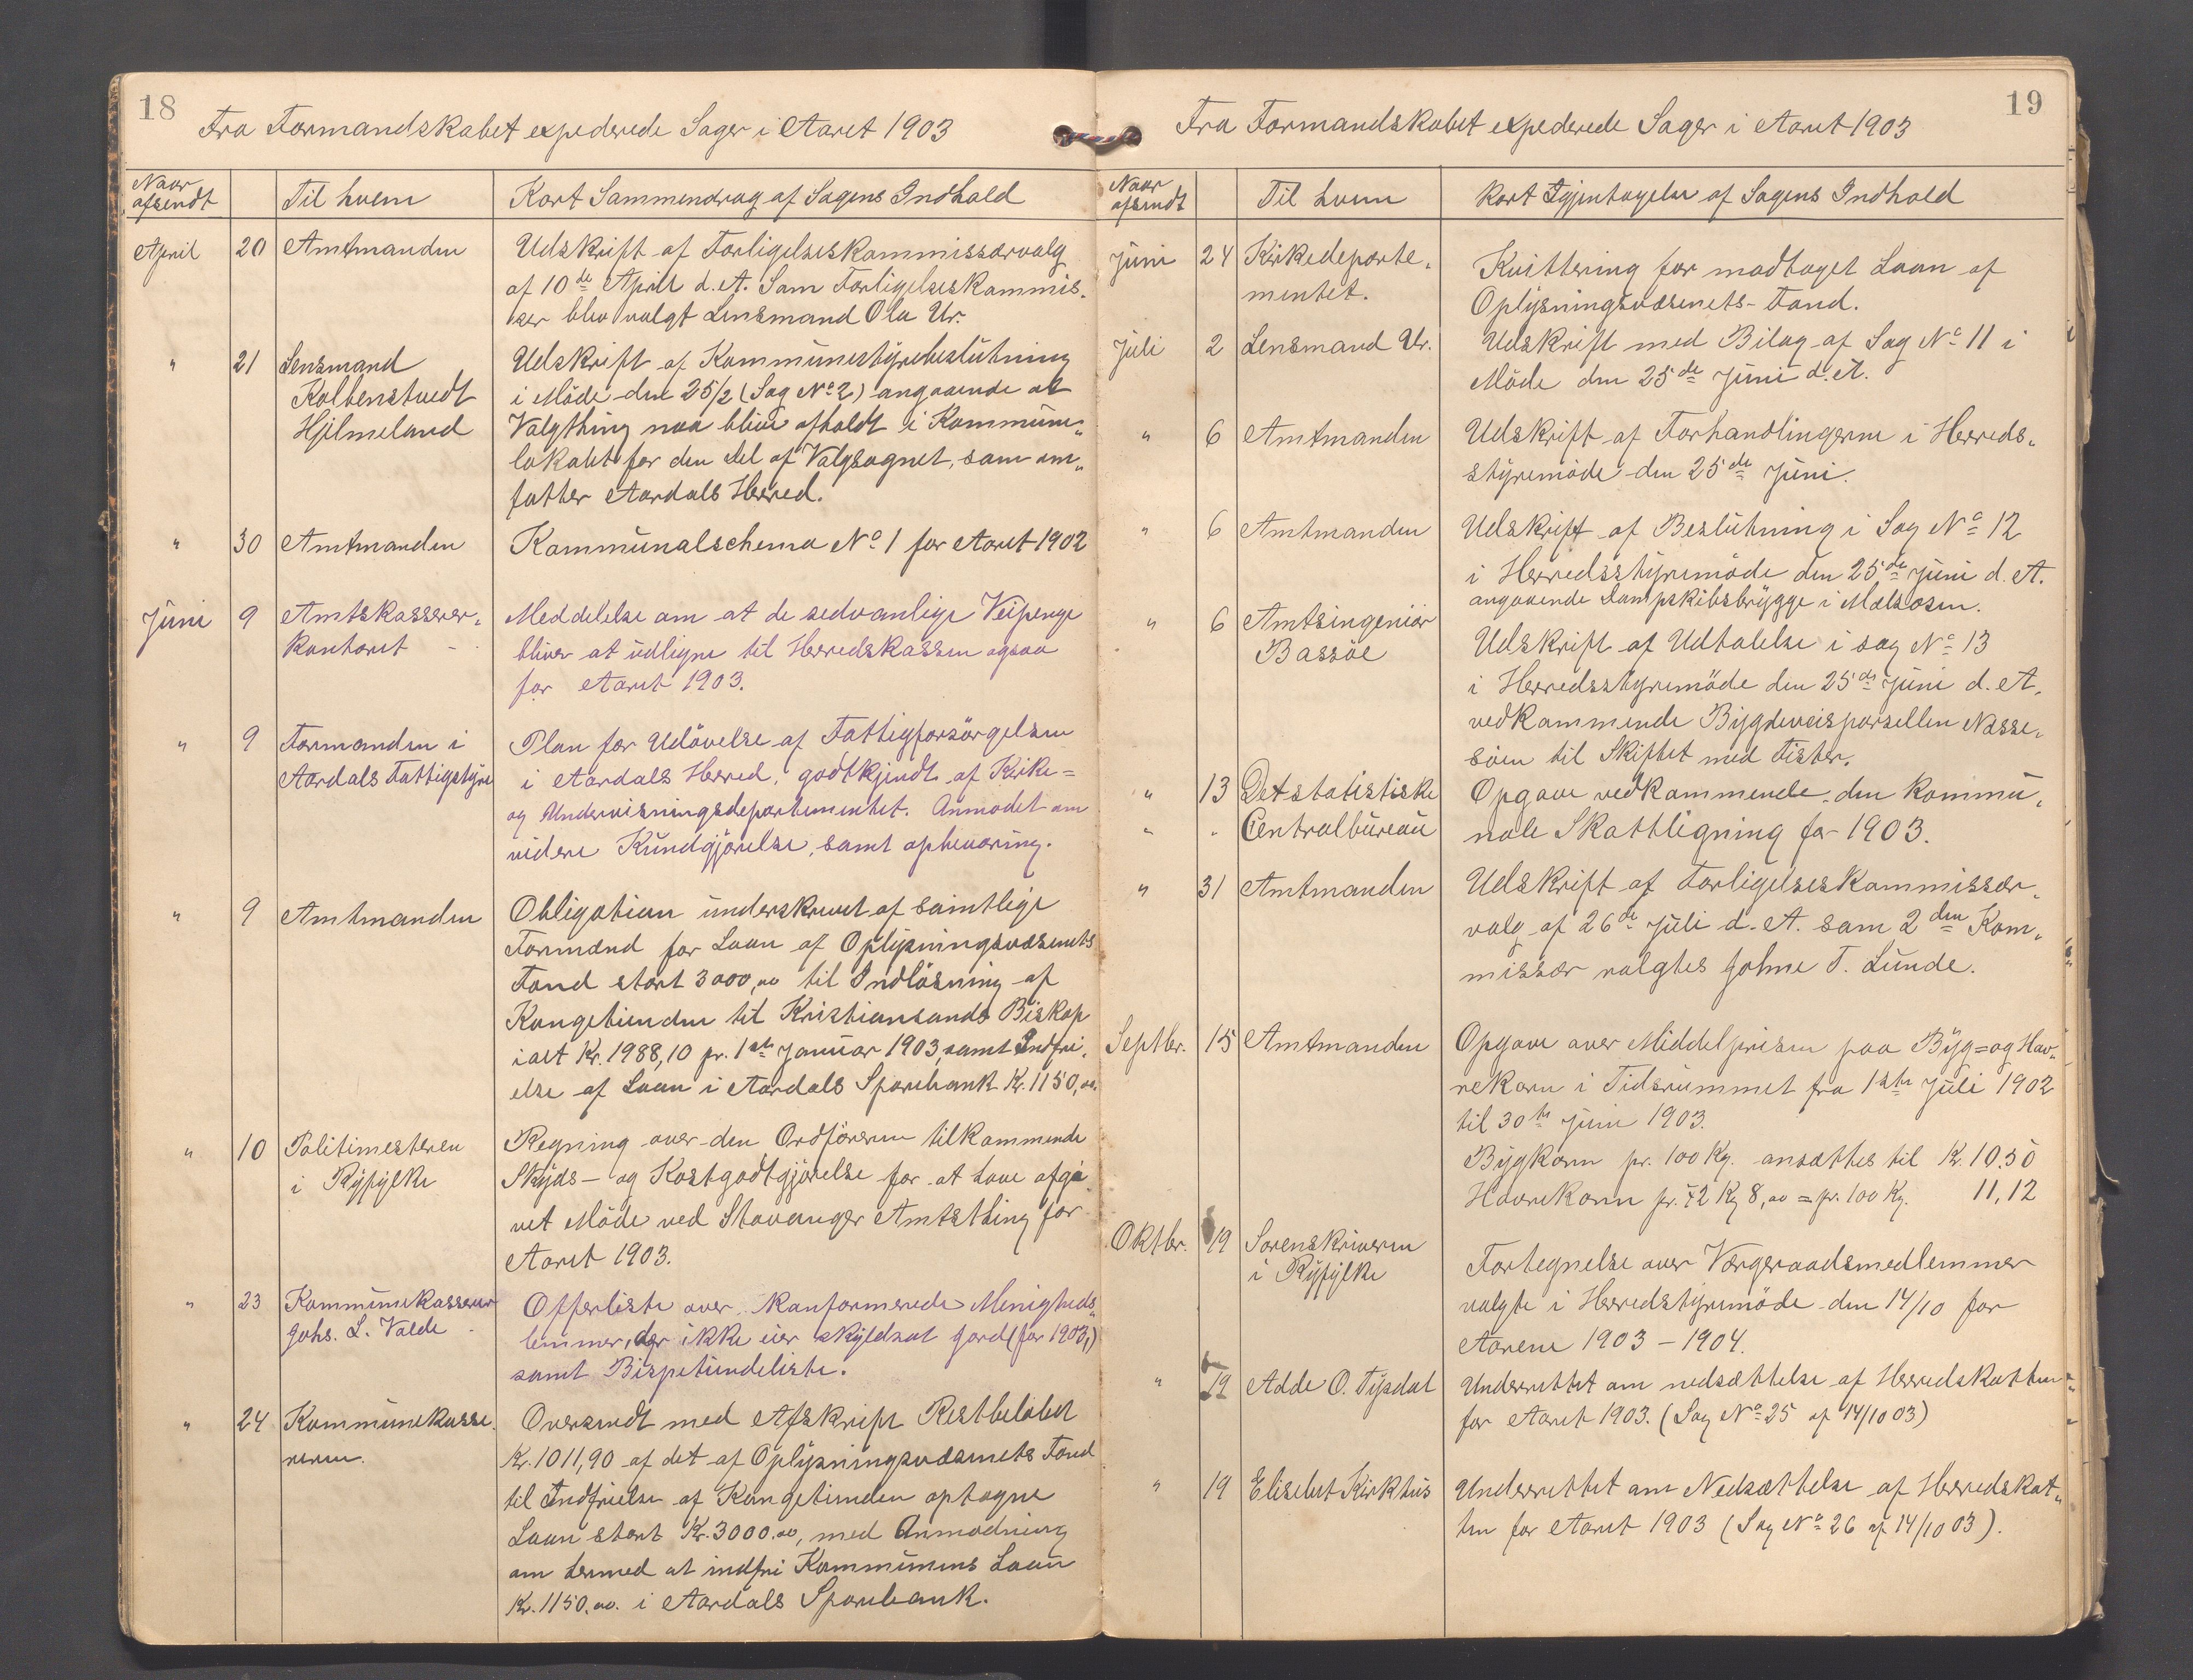 18
Fra Formandskabet expederede Sager i Aaret 1903
Naar afsendt
Til hvem
Kort Sammendrag af Sagens Indhold
April 20 Amtmanden Udskrift af Forligelseskommissærvalg
af 10de April d. A. Som Forligelseskommis-
sær blev valgt Lensmand Ola Ur.
" 21 Lensmand Udskrift af Kommunestyrebeslutning
Kolbenstvedt i Möde den 25/2 (Sag No 2) angaaende at
Hjelmeland Valgthing maa blive afholdt i Kommune-
lokalet for den del af Valgsognet, som om-
fatter Aardals Herred.
" 30 Amtmanden Kommunalschema No 1 for Aaret 1902
Juni 9 Amtskasserer- Meddelelse om at de sedvanlige Veipenge
kontoret bliver at udligne til Herredskassen ogsaa
for Aaret 1903.
" 9 Formanden i Plan for Udövelse af Fattigforsörgelsen
Aardals Fattigstyre i Aardals Herred, godtkjendt af Kirke=
og Undervisningsdepartementet. Anmodet om
videre Kundgjörelse, samt opbevaring.
" 9 Amtmanden Obligation underskrevet af samtlige
Formænd for Laan af Oplysningsvæsenets
Fond stort 3000,00 til Indlösning af
Kongetienden til Kristiansands Biskop
ialt Kr. 1988,10 pr. 1ste Januar 1903, samt Indfri-
else af Laan i Aardals Sparebank Kr. 1150,00.
" 10 Politimesteren Regning over den Ordföreren tilkommende
i Ryfylke Skyds- og Kostgodtgjörelse for at have afgi-
vet Möde ved Stavanger Amtsthing for
Aaret 1903.
" 23 Kommunekasserer Offerliste over konformerede Menigheds-
Johs. L. Valde lemmer, der ikke eier skyldsat jord (for 1903,)
samt Bispetiendeliste.
" 24 Kommunekasse- Oversendt med Afskrift Restbelöbet
reren. Kr. 1011,90 af det af Oplysningsvæsenets Fond
til Indfrielse af Kongetienden optagne
Laan stort Kr. 3000.00, med Anmodning
om dermed at indfri Kommunens Laan
Kr. 1150.00. i Aardals Sparebank.
19
Fra Formandskabet expederede Sager i Aaret 1903
Naar afsendt
Til hvem
Kort Igjentagelse af Sagens Indhold
Juni 24 Kirkedeporte- Kvittering for modtaget Laan af
mentet. Oplysningsvæsenets-Fond.
Juli 2 Lensmand Ur. Udskrift med Bilag af Sag No 11 i
Möde den 25de Juni d. A.
" 6 Amtmanden Udskrift af Forhandlingerne i Herreds-
styremöde den 25de Juni.
" 6 Amtmanden Udskrift af Beslutning i Sag No 12
i Herredsstyremöde den 25de Juni d. A.
angaaende Dampskibsbrygge i Mælsosen.
" 6 Amtsingeniör Udskrift af Udtalelse i sag No 13
Bassöe i Herredsstyremöde den 25de Juni d. A.
vedkommende Bygdeveisparsellen Nesse-
söen til Skiftet med Fister.
" 13 Det statistiske Opgave vedkommende den kommu-
" " Centralbureau nale Skatteligning for 1903.
" 31 Amtmanden Udskrift af Forligelseskommissær-
valg af 26de Juli d. A. som 2den Kom-
missær valgtes Johne T. Lunde.
Septbr. 15 Amtmanden Opgave over Middelprisen paa Byg= og Hav-
rekorn i Tidsrummet fra 1ste Juli 1902
til 30te Juni 1903.
Bygkorn pr. 100 Kg. ansættes til Kr. 10.50
Havrekorn pr. 72 Kg 8,00 = pr. 100 Kg. 11,12
Oktbr. 19 Sorenskriveren Fortegnelse over Værgeraadsmedlemmer
i Ryfylke valgte i Herredstyremöde den 14/10 for
Aarene 1903 – 1904.
" 19 Adde O. Tysdal Underrettet om nedsættelse af Herredskatten
for Aaret 1903. (Sag No 25 af 14/10 03)
" 19 Elisebet Kirkhus Underrettet om Nedsættelse af Herredskat-
ten for Aaret 1903 (Sag No 26 af 14/10 03).